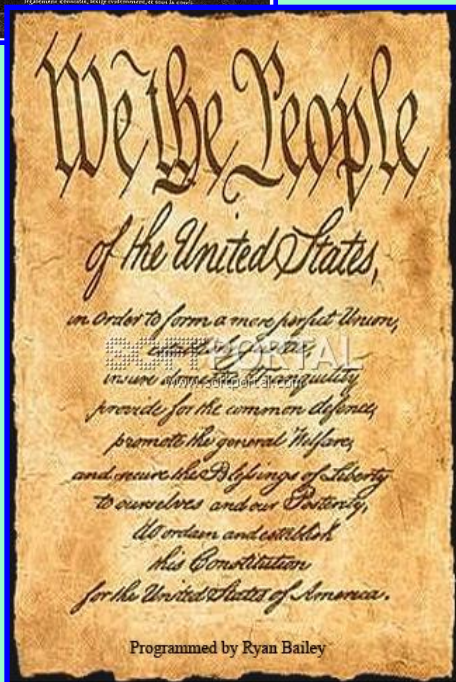 We the People
of the United States,
in Order to form a more perfect Union,
SOFTPORTAL
www.softportal.com
insure domestic Tranquility
provide for the common defence,
promote the general Welfare,
and secure the Blessings of Liberty
to ourselves and our Posterity,
do ordain and establish
this Constitution
for the United States of America.
Programmed by Ryan Bailey